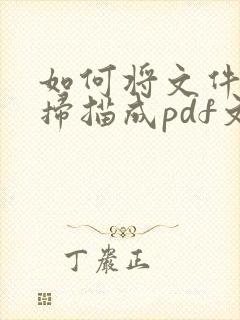 如何将文件
扫描成pdf文
丁严正